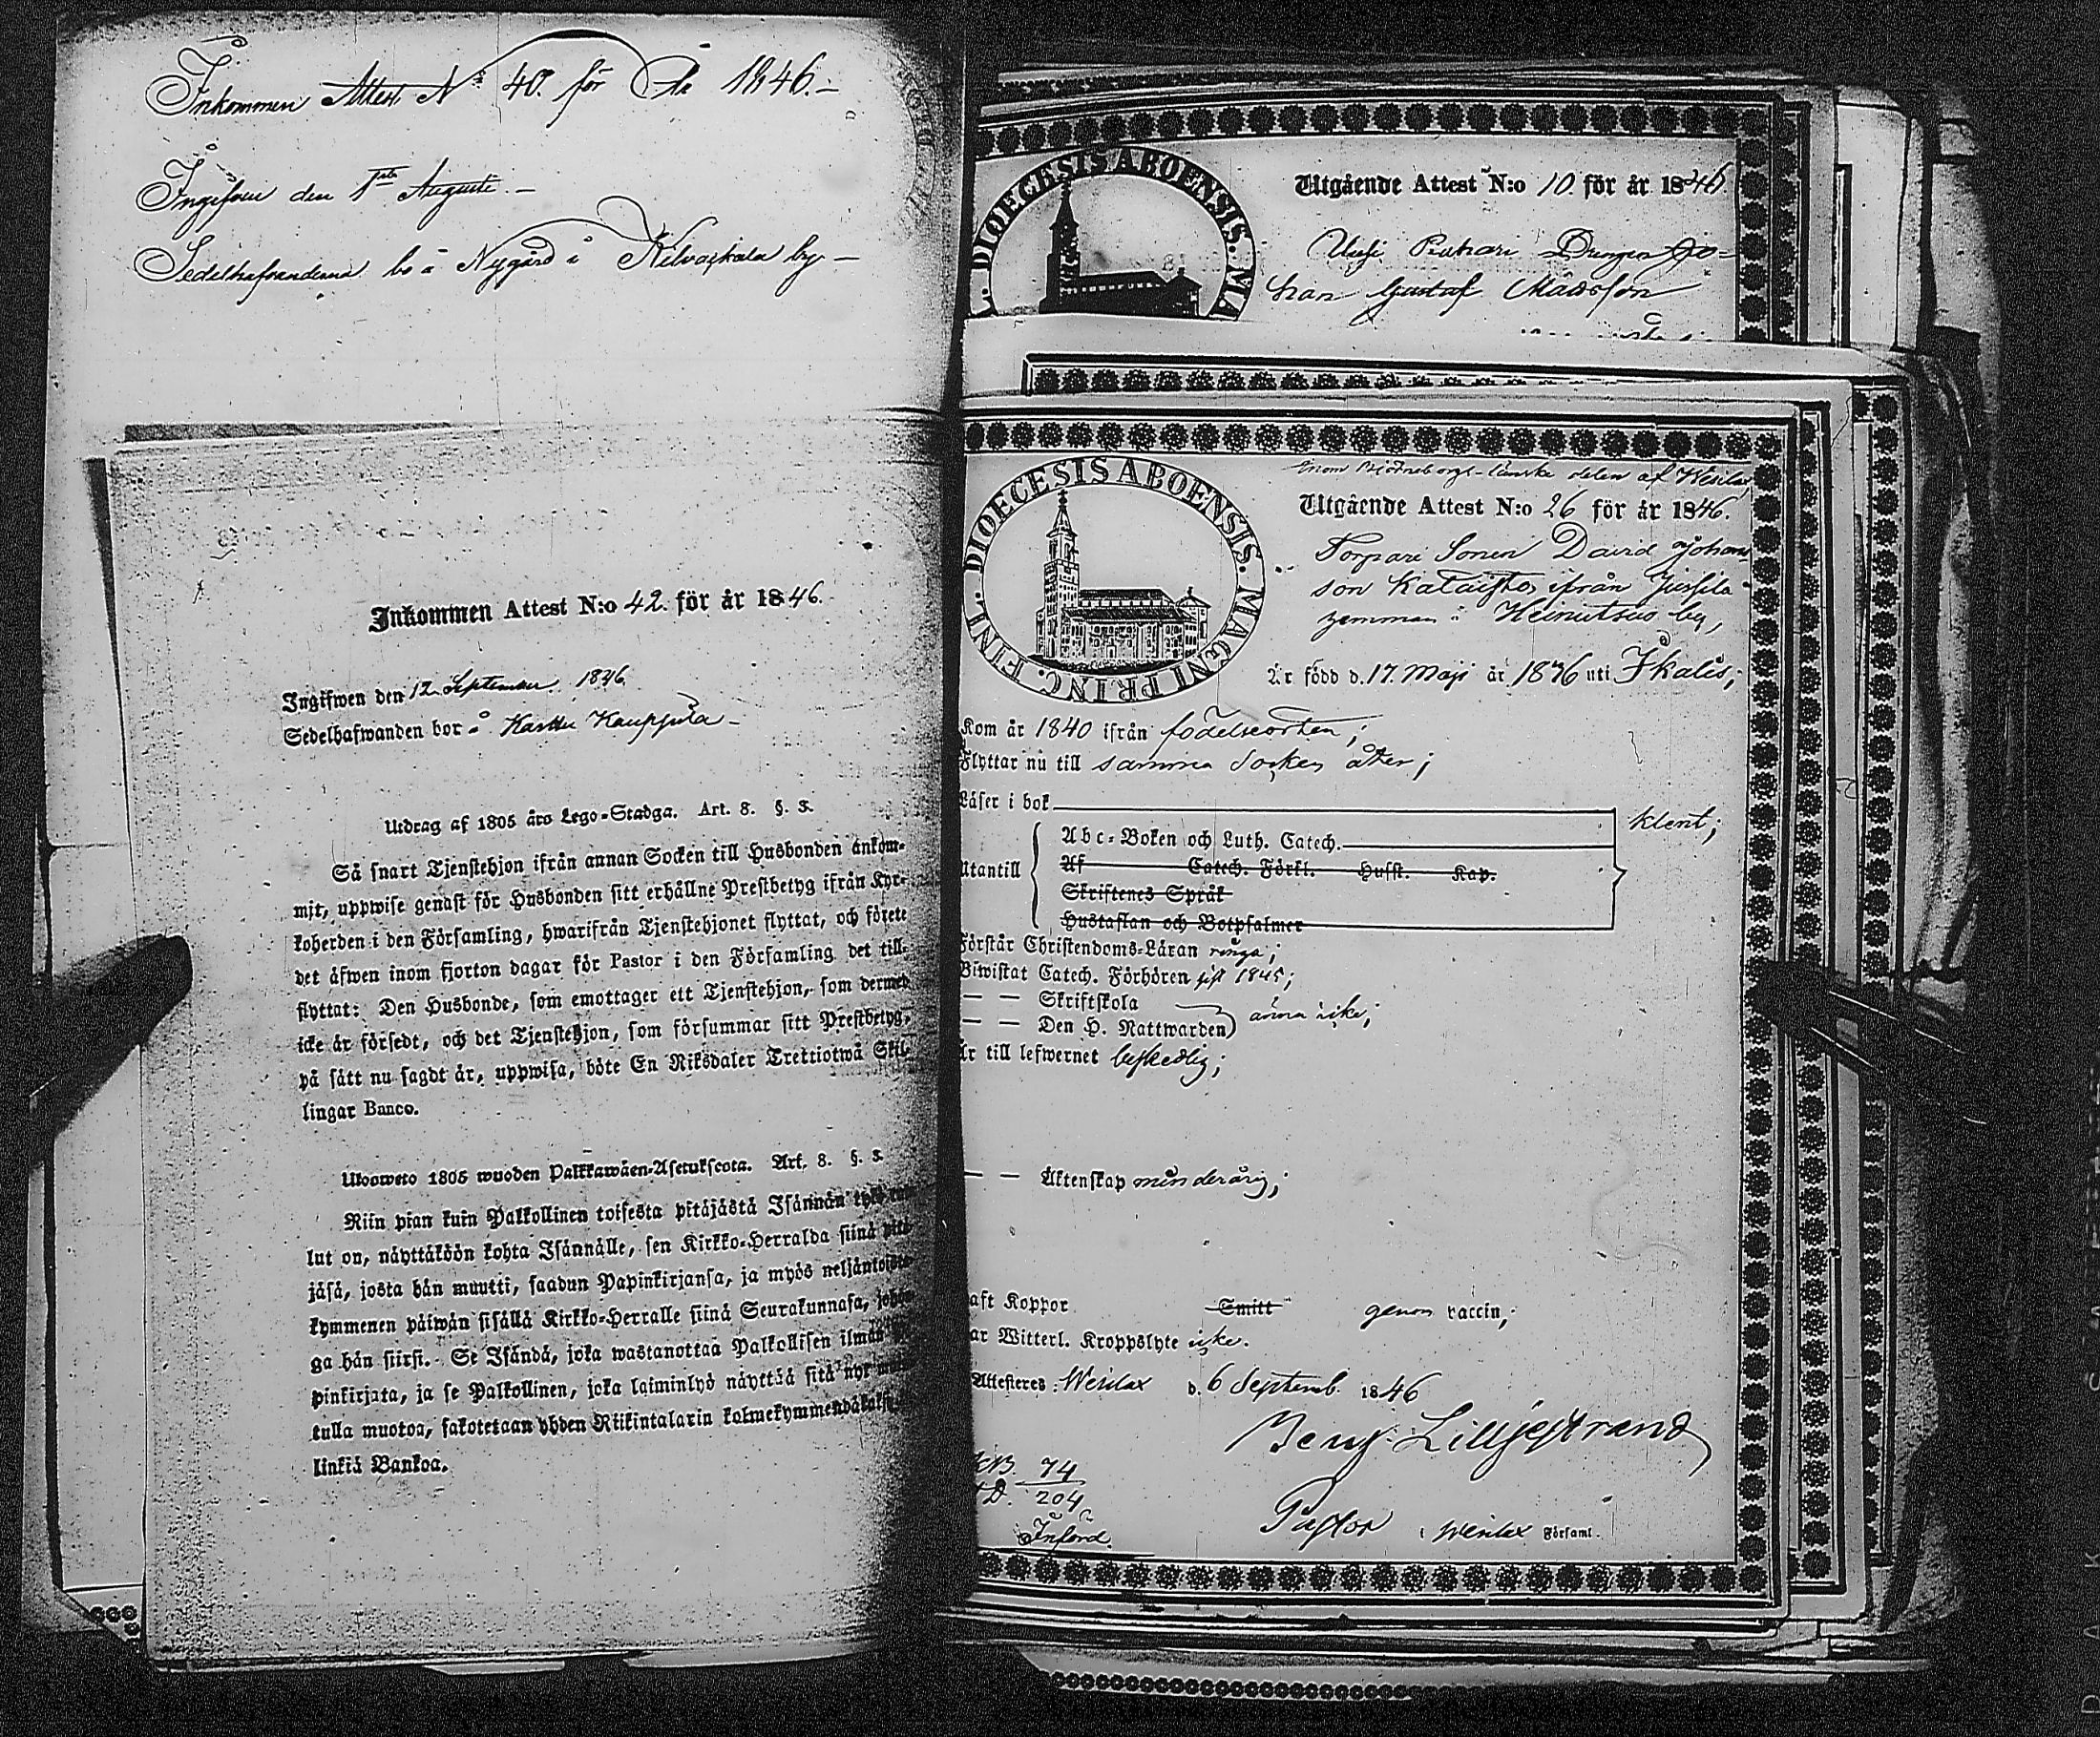 Inkommen Attest N:o 40. för År 1846.–
Ingifven den 1sta Augusti.–
Sedelhafvanderna bo å Nygård i Kilvakkala by.–
Inkommen Attest N:o 42. för år 1846.
Ingifwen den 12 September 1846.
Sedelhafwanden bor å Karttu Kauppila –
Utdrag af 1805 års Lego-Stadga. Art. 8. §. 3.
Så snart Tjenstehjon ifrån annan Socken till Husbonden ankom-
mit, uppwise genast för Husbonden sitt erhållne Prestbetyg ifrån Kyr-
koherden i den Församling, hwarifrån Tjenstehjonet flyttat, och förete
det äfwen inom fjorton dagar för Pastor i den Församling det till-
flyttat: Den Husbonde, som emottager ett Tjenstehjon, som dermed
icke är försedt, och det Tjenstehjon, som försummar sitt Prestbetyg,
på sätt nu sagdt är, uppwisa, böte En Riksdaler Trettiotwå Skil-
lingar Banco.
Uloosweto 1805 wuoden Palkkawäen-Asetuksesta. Art. 8. §. 3.
Niin pian kuin Palkollinen toisesta pitäjästä Isännän
lut on, näyttäköön kohta Isännälle, sen Kirkko-Herralda siinä pitä-
jäsä, josta hän muutti, saadun Papinkirjansa, ja myös neljäntoista-
kymmenen päiwän sisällä Kirkko-Herralle siinä Seurakunnasa, johon-
ga hän siirsi. Se Isändä, joka wastanottaa Palkollisen ilman
pinkirjata, ja se Palkollinen, joka laiminlyö näyttää sitä nyt
tulla muotoa, sakotetaan yhden Riikintalarin kolmekymmendäkaksi
linkiä Bankoa.
DIOECESIS ABOENSIS. MA
Utgående Attest N:o 10. för år 1846.
Uusi Pukari Drengen Jo-
han Gustaf Matsson
Inom Björneborgs-länske delen af Wesilax,
FINL. DIOECESIS ABOENSIS. MAGNI PRINC.
Utgående Attest N:o 26 för år 1846.
Torpare Sonen David Johan-
son Kataisto, ifrån Jussila
hemman i Heinutsus by,
Är född d. 17. Maji år 1836 uti Ikalis;
Kom år 1840 ifrån födelseorten;
Flyttar nu till samma Socken åter;
Läser i bok
klent;
Abc-Boken och Luth. Catech.
Utantill
Af Catech. Förkl. Husst. Kap.
Skriftenes Språk
Hustaflan och Botpsalmer
Förstår Christendoms-Läran ringa;
Biwistat Catech. Förhören sist 1845;
— — Skriftskola
— — Den H. Nattwarden) ännu icke;
Är till lefwernet beskedlig;
— — Äktenskap minderårig;
aft Koppor Smitt genom vaccin;
ar Witterl. Kroppslyte icke.
Attesteres: Wesilax d. 6 Septemb. 1846
Benj. Lilljestrand
KB. 74
204
Införd.
Pastor i Wesilax Församl.